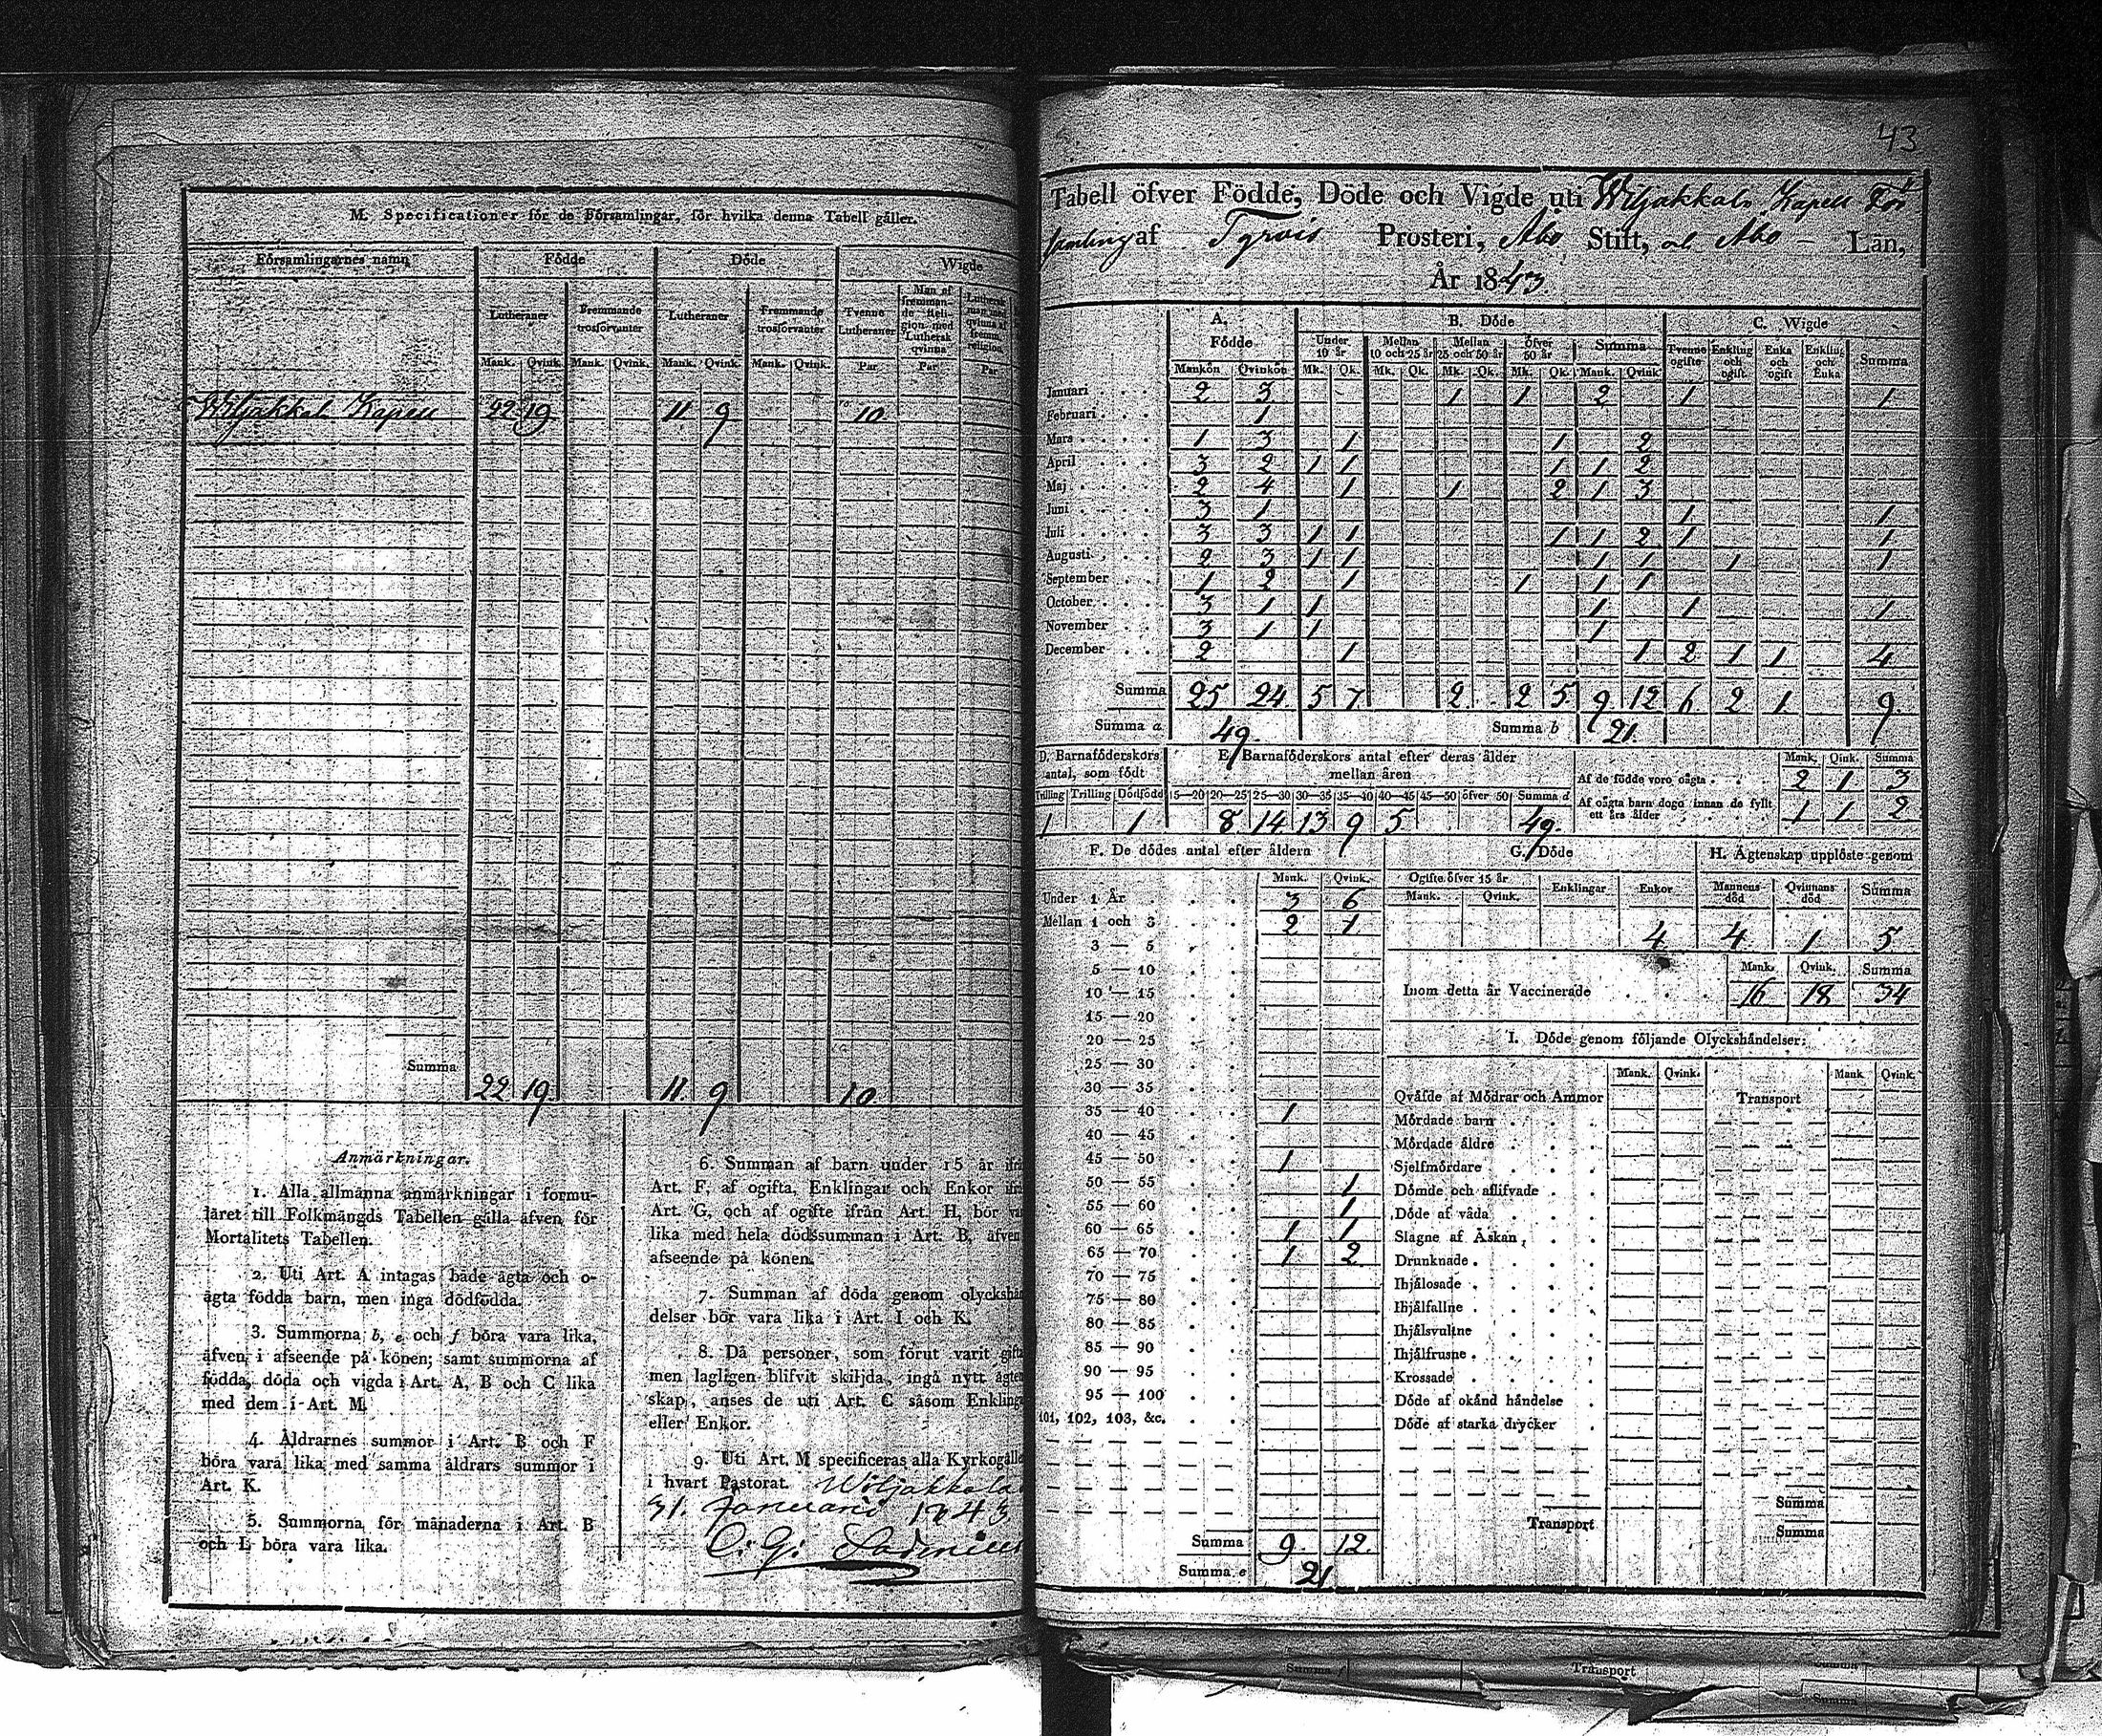 M. Specificationer för de Församlingar, för hvilka denna Tabell gäller.
Församlingarnes namn Födde Döde Wigde
Lutheraner Fremmande trosförvanter Lutheraner Fremmande trosförvanter Tvenne Lutheraner Man af fremmande Religion med Luthersk qvinna Luthersk man med qvinna af fremm. religion
Mank. Qvink. Mank. Qvink. Mank. Qvink. Mank. Qvink. Par Par Par
Wiljakkala Kapell 22 19 11 9 10
Summa 22 19 11 9 10
Anmärkningar.
1. Alla allmänna anmärkningar i formu-
läret till Folkmängds Tabellen gälla äfven för
Mortalitets Tabellen.
2. Uti Art. A intagas både ägta och o-
ägta födda barn, men inga dödfödda.
3. Summorna b, e och f böra vara lika,
äfven i afseende på könen; samt summorna af
födda, döda och vigda i Art. A, B och C lika
med dem i Art. M.
4. Åldrarnes summor i Art. B och F
böra vara lika med samma åldrars summor i
Art. K.
5. Summorna för månaderna i Art. B
och L böra vara lika.
6. Summan af barn under 15 år ifrå
Art. F, af ogifta, Enklingar och Enkor ifr
Art. G, och af ogifte ifrån Art. H, bör va
lika med hela dödssumman i Art. B, äfven
afseende på könen.
7. Summan af döda genom olyckshän
delser bör vara lika i Art. I och K.
8. Då personer, som förut varit gifta
men lagligen blifvit skiljda, ingå nytt ägten
skap, anses de uti Art. C såsom Enkling
eller Enkor.
9. Uti Art. M specificeras alla Kyrkogälle
i hvart Pastorat. Wiljakkala
31. Januarii 1843
C: G:
43
Tabell öfver Födde, Döde och Vigde uti Wiljakkala Kapell För
samling af Tyrvis Prosteri, Åbo Stift, och Åbo – Län,
År 1843.
A. Födde B. Döde C. Wigde
Under 10 år Mellan 10 och 25 år Mellan 25 och 50 år Öfver 50 år Summa Tvenne ogifte Enkling och ogift Enka och ogift Enkling och Enka Summa
Mankön Qvinkön Mk. Qk. Mk. Qk. Mk. Qk. Mk. Qk. Mank. Qvink.
Januari 2 3 1 1 2 1 1
Februari 1
Mars 1 3 1 1 2
April 3 2 1 1 1 1 2
Maj 2 4 1 1 2 1 3
Juni 3 1 1 1
Juli 3 3 1 1 1 1 2 1 1
Augusti 2 3 1 1 1 1 1 1
September 1 2 1 1 1 1
October 3 1 1 1 1 1
November 3 1 1 1
December 2 1 1 2 1 1 4
Summa 25 24 5 7 2 2 5 9 12 6 2 1 9
Summa a 49. Summa b 21.
D. Barnaföderskors antal, som födt
E. Barnaföderskors antal efter deras ålder mellan åren
Tvilling Trilling Dödfödd 15—20 20—25 25—30 30—35 35—40 40—45 45—50 öfver 50 Summa d
1 1 8 14 13 9 5 49.
Mank. Qink. Summa
Af de födde voro oägta 2 1 3
Af oägta barn dogo innan de fyllt ett års ålder 1 1 2
F. De dödes antal efter åldern
Mank. Qvink.
Under 1 År 3 6
Mellan 1 och 3 2 1
3 — 5
5 — 10
10 — 15
15 — 20
20 — 25
25 — 30
30 — 35
35 — 40 1
40 — 45
45 — 50 1
50 — 55 1
55 — 60 1
60 — 65 1 1
65 — 70 1 2
70 — 75
75 — 80
80 — 85
85 — 90
90 — 95
95 — 100
101, 102, 103, &c.
Summa 9. 12.
Summa e 21
G. Döde
Ogifte öfver 15 år Enklingar Enkor
Mank. Qvink.
4
H. Ägtenskap upplöste genom
Mannens död Qvinnans död Summa
4 1 5
Mank. Qvink. Summa
Inom detta år Vaccinerade 16 18 34
I. Döde genom följande Olyckshändelser:
Mank. Qvink. Mank Qvink.
Qväfde af Mödrar och Ammor Transport
Mördade barn
Mördade äldre
Sjelfmördare
Dömde och aflifvade
Döde af våda
Slagne af Åskan
Drunknade
Ihjälosade
Ihjälfallne
Ihjälsvultne
Ihjälfrusne
Krossade
Döde af okänd händelse
Döde af starka drycker
Summa
Transport Summa
Summa Transport Summa
Summa